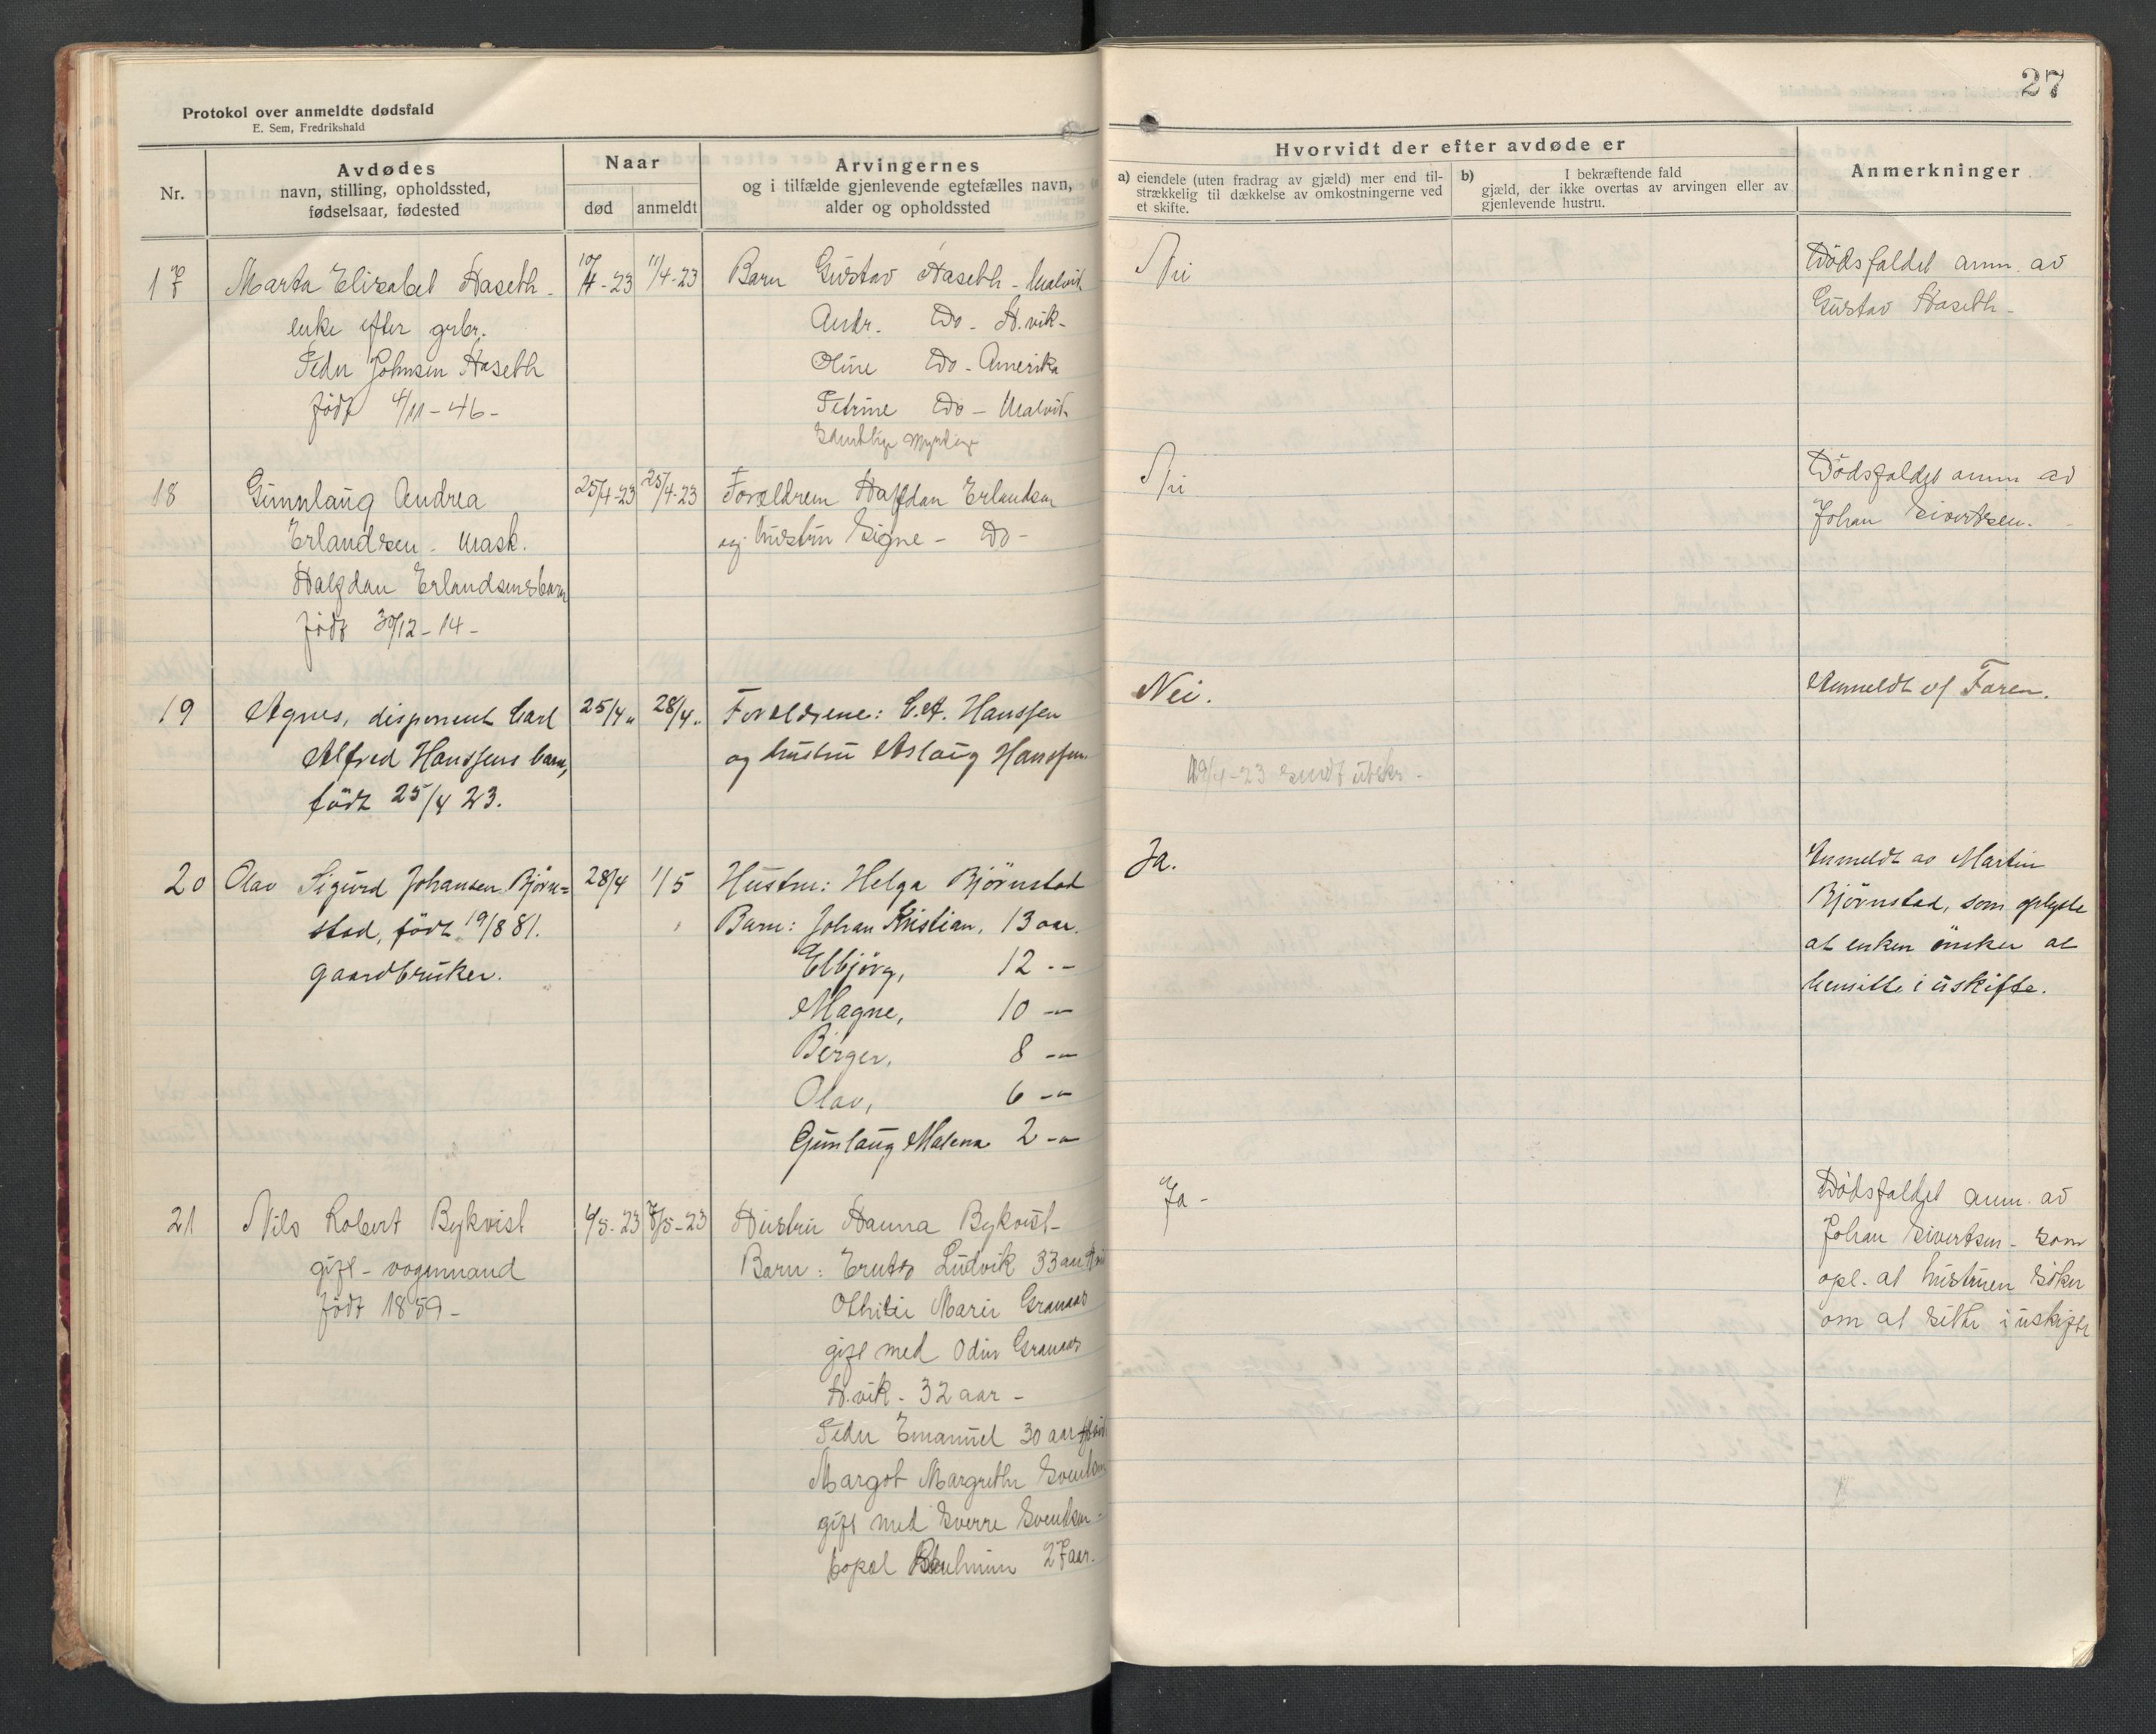 27
Protokol over anmeldte dødsfald
E. Sem, Fredrikshald
Nr.
Avdødes
navn, stilling, opholdssted,
fødselsaar, fødested
Naar
død
anmeldt
Arvingernes
og i tilfælde gjenlevende egtefælles navn,
alder og opholdssted
Hvorvidt der efter avdøde er
a) eiendele (uten fradrag av gjæld) mer end til-
strækkelig til dækkelse av omkostningerne ved
et skifte.
b) I bekræftende fald
gjæld, der ikke overtas av arvingen eller av
gjenlevende hustru.
Anmerkninger
17
Marta Elisabet Haseth -
enke efter grbr.
Peder Johnsen Haseth
født 4/11-46-
10/4-23
11/4-23
Barn Gustav Haseth - Malvik
Andr. Do - H.vik-
Oline Do - Amerika
Petrine Do - Malvik
Samtlige myndige
Nei
Dødsfaldet anm. av
Gustav Haseth -
18
Gunnlaug Andrea
Erlandsen - Mask.
Halfdan Erlandsens barn
født 30/12-14-
25/4-23
25/4-23
Forældrene Halfdan Erlandsen
og hustru Signe - Do -
Nei
Dødsfaldet anm av
Johan Sivertsen.
19
Agnes, disponent Carl
Alfred Hanssens barn,
født 25/4 23.
25/4 "
28/4 "
Forældrene: C.A. Hanssen
og hustru Aslaug Hanssen
Nei.
29/4-23 sendt utskr -
Anmeldt af Faren.
20
Olav Sigurd Johansen Bjørn=
stad, født 19/8 81.
gaardbruker.
28/4
1/5
Hustru: Helga Bjørnstad
Barn: Johan Kristian, 13 aar.
Elbjørg, 12 --
Magne, 10 --
Birger, 8 --
Olav, 6 --
Gunlaug Malena 2 --
Ja.
Anmeldt av Martin
Bjørnstad, som oplyste
at enken ønsker at
hensitte i uskifte.
21
Nils Robert Bykvist
gift - vognmand
født 1859 -
4/5-23
7/5-23
Hustru Hanna Bykvist -
Barn: Ludvik 33 aar
Marie Granaas
gift med Odin Granaas
H.vik - 32 aar -
Peder Emanuel 30 aar
Margot Margrethe Svendsen
gift med Sverre Svendsen -
27 aar.
Ja -
Dødsfaldet anm. av
Johan Sivertsen - som
opl. at hustruen søker
om at sitte i uskifte